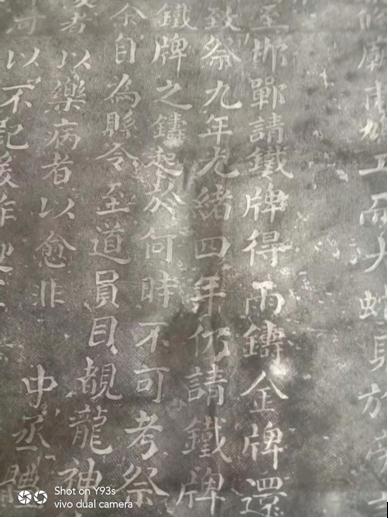 工而大蛇見於
至邯鄲請鐵牌得雨鑄金牌還
致祭九年光緒四年仍請鐵牌
鐵牌之鑄起於何時不可考祭
余自為縣令至道員目覩龍神
者以樂病者以愈非 中丞體
以不記爰作
Shot on Y93s
vivo dual camera